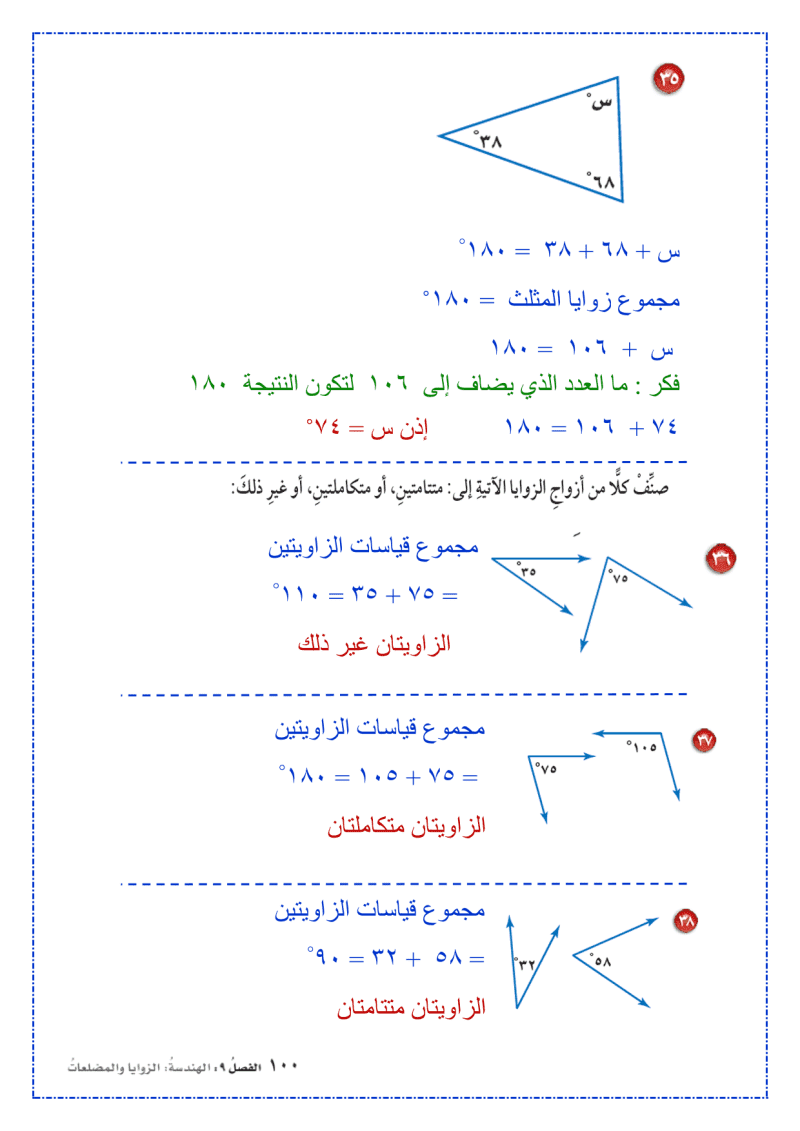 ٣٥
س°
٣٨°
٦٨°
س + ٦٨ + ٣٨ = ١٨٠°
مجموع زوايا المثلث = ١٨٠°
س + ١٠٦ = ١٨٠
فكر : ما العدد الذي يضاف إلى ١٠٦ لتكون النتيجة ١٨٠
٧٤ + ١٠٦ = ١٨٠ إذن س = ٧٤°
صنِّفْ كلًّا من أزواجِ الزوايا الآتيةِ إلى: متتامتينِ، أو متكاملتينِ، أو غيرِ ذلكَ:
٣٦
٣٥°
٧٥°
مجموع قياسات الزاويتين
= ٧٥ + ٣٥ = ١١٠°
الزاويتان غير ذلك
٣٧
١٠٥°
٧٥°
مجموع قياسات الزاويتين
= ٧٥ + ١٠٥ = ١٨٠°
الزاويتان متكاملتان
٣٨
٥٨°
٣٢°
مجموع قياسات الزاويتين
= ٥٨ + ٣٢ = ٩٠°
الزاويتان متتامتان
١٠٠ الفصلُ ٩: الهندسةُ: الزوايا والمضلعاتُ